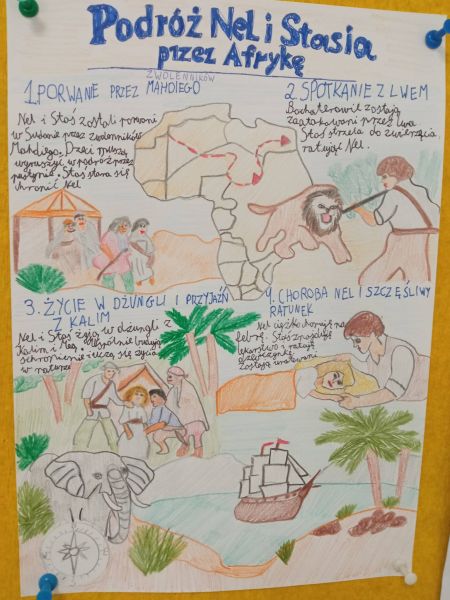 Podróż Nel i Stasia
przez Afrykę
1. PORWANIE PRZEZ ZWOLENNIKÓW MAHDIEGO
Nel i Staś zostali porwani
w Sudanie przez zwolenników
Mahdiego. Dzieci muszą
wyruszyć w podróż przez
pustynię. Staś stara się
chronić Nel.
2. SPOTKANIE Z LWEM
Bochaterowie zostają
zaatakowani przez lwa
Staś strzela do zwierzęcia
ratując Nel.
3. ŻYCIE W DŻUNGLI I PRZYJAŹŃ
Z KALIM
Nel i Staś żyją w dżungli z
Kalim i Meą. Wspólnie budują
schronienie i uczą się życia
w naturze
4. CHOROBA NEL I SZCZĘŚLIWY
RATUNEK
Nel ciężko choruje na
febrę. Staś znajduje
lekarstwo i ratuje
dziewczynkę.
Zostają uratowani